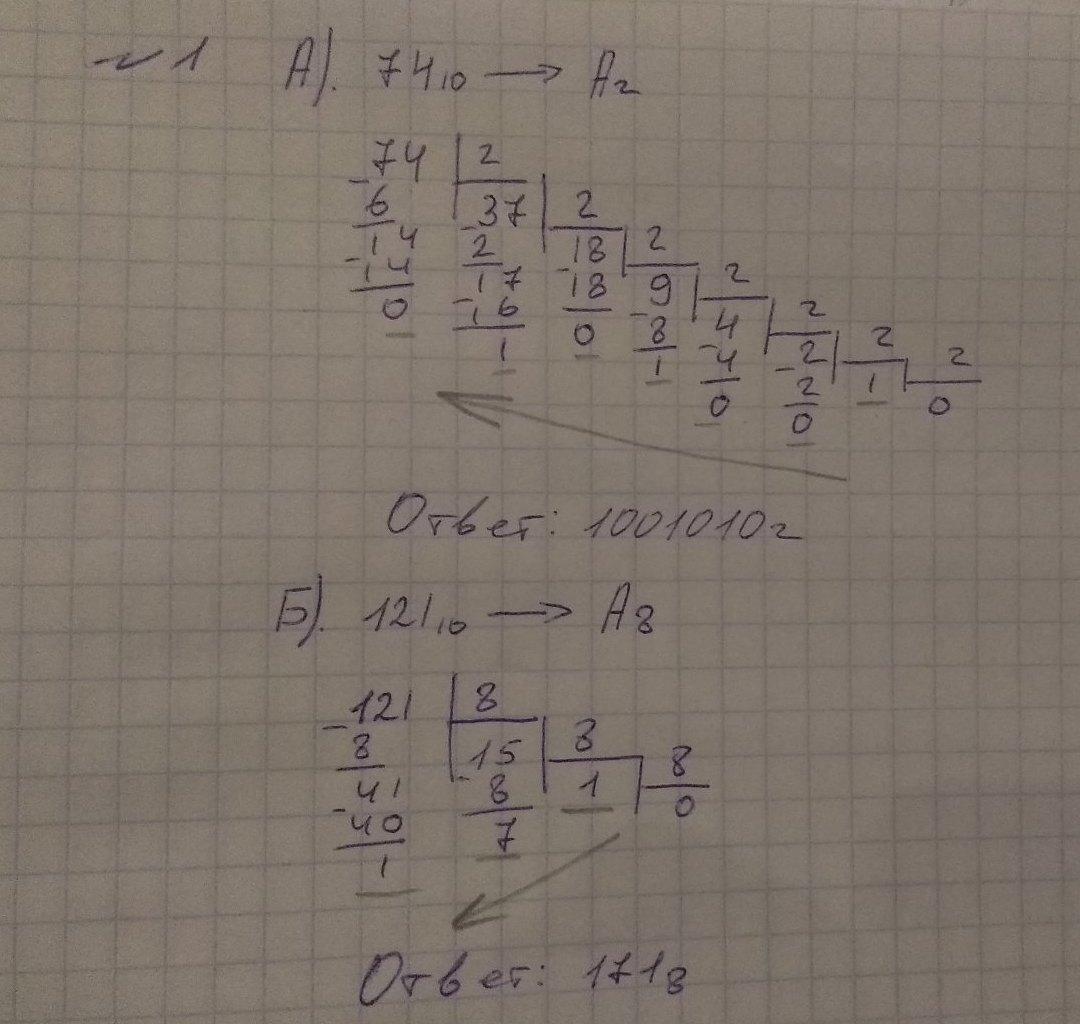 №1 А). 74₁₀ → А₂
74 2
6 37 2
14 2 18 2
14 17 18 9 2
0 16 0 8 4 2
1 1 4 2 2
0 2 1 2
0 0
Ответ: 1001010₂
Б). 121₁₀ → А₈
121 8
8 15 8
41 8 1 8
40 7 0
1
Ответ: 171₈